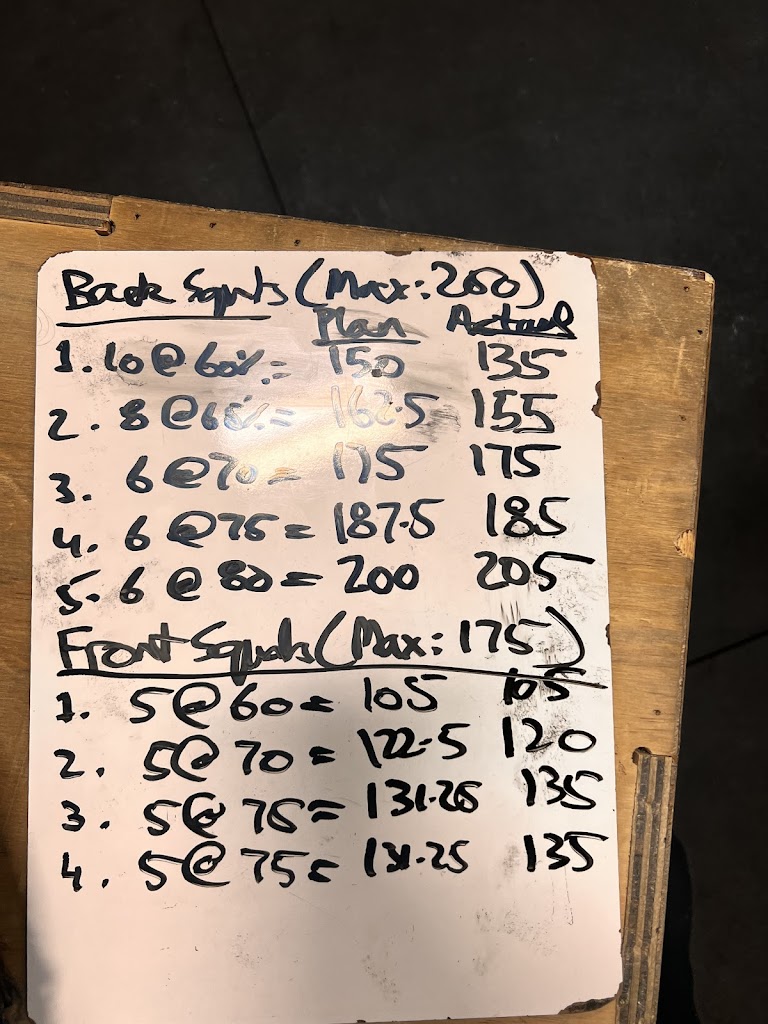 Back Squats (Max: 250)
Plan Actual
1. 10 @ 60% = 150 135
2. 8 @ 65% = 162.5 155
3. 6 @ 70 = 175 175
4. 6 @ 75 = 187.5 185
5. 6 @ 80 = 200 205
Front Squats (Max: 175)
1. 5 @ 60 = 105 105
2. 5 @ 70 = 122.5 120
3. 5 @ 75 = 131.25 135
4. 5 @ 75 = 131.25 135